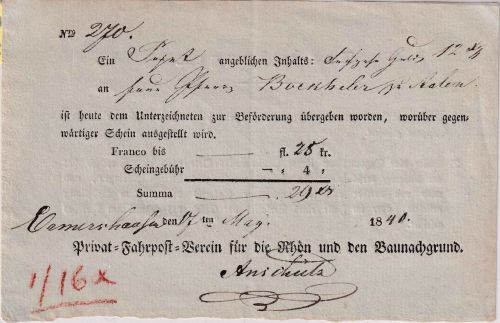 Nro 270.
Ein Paquet angeblichen Inhalts: Gulden 12 xr
an Herrn Pfarrer Boekheler zu Aalen
ist heute dem Unterzeichneten zur Beförderung übergeben worden, worüber gegen-
wärtiger Schein ausgestellt wird.
Franco bis fl. 25 kr.
Scheingebühr —„ 4 „
Summa 29 xr
den 17ten May 1840.
Privat-Fahrpost-Verein für die Rhön und den Baunachgrund.
Anschütz
1/16 x